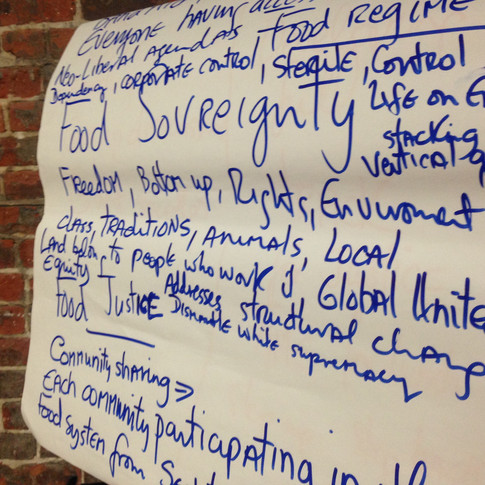 Everyone having access
Food Regime
Neo-Liberal Agendas
Dependency, corporate control, Sterile, Control
Life on E
Food Sovereignty
stacking
vertical
Freedom, Bottom up, Rights, Enviroment
class, Traditions, Animals, Local
Land belong to people who work it
Global Unite
Equity
Food Justice Addresses structural change
Dismantle white supremacy
Community sharing ⇒
Each community participating in
Food system from